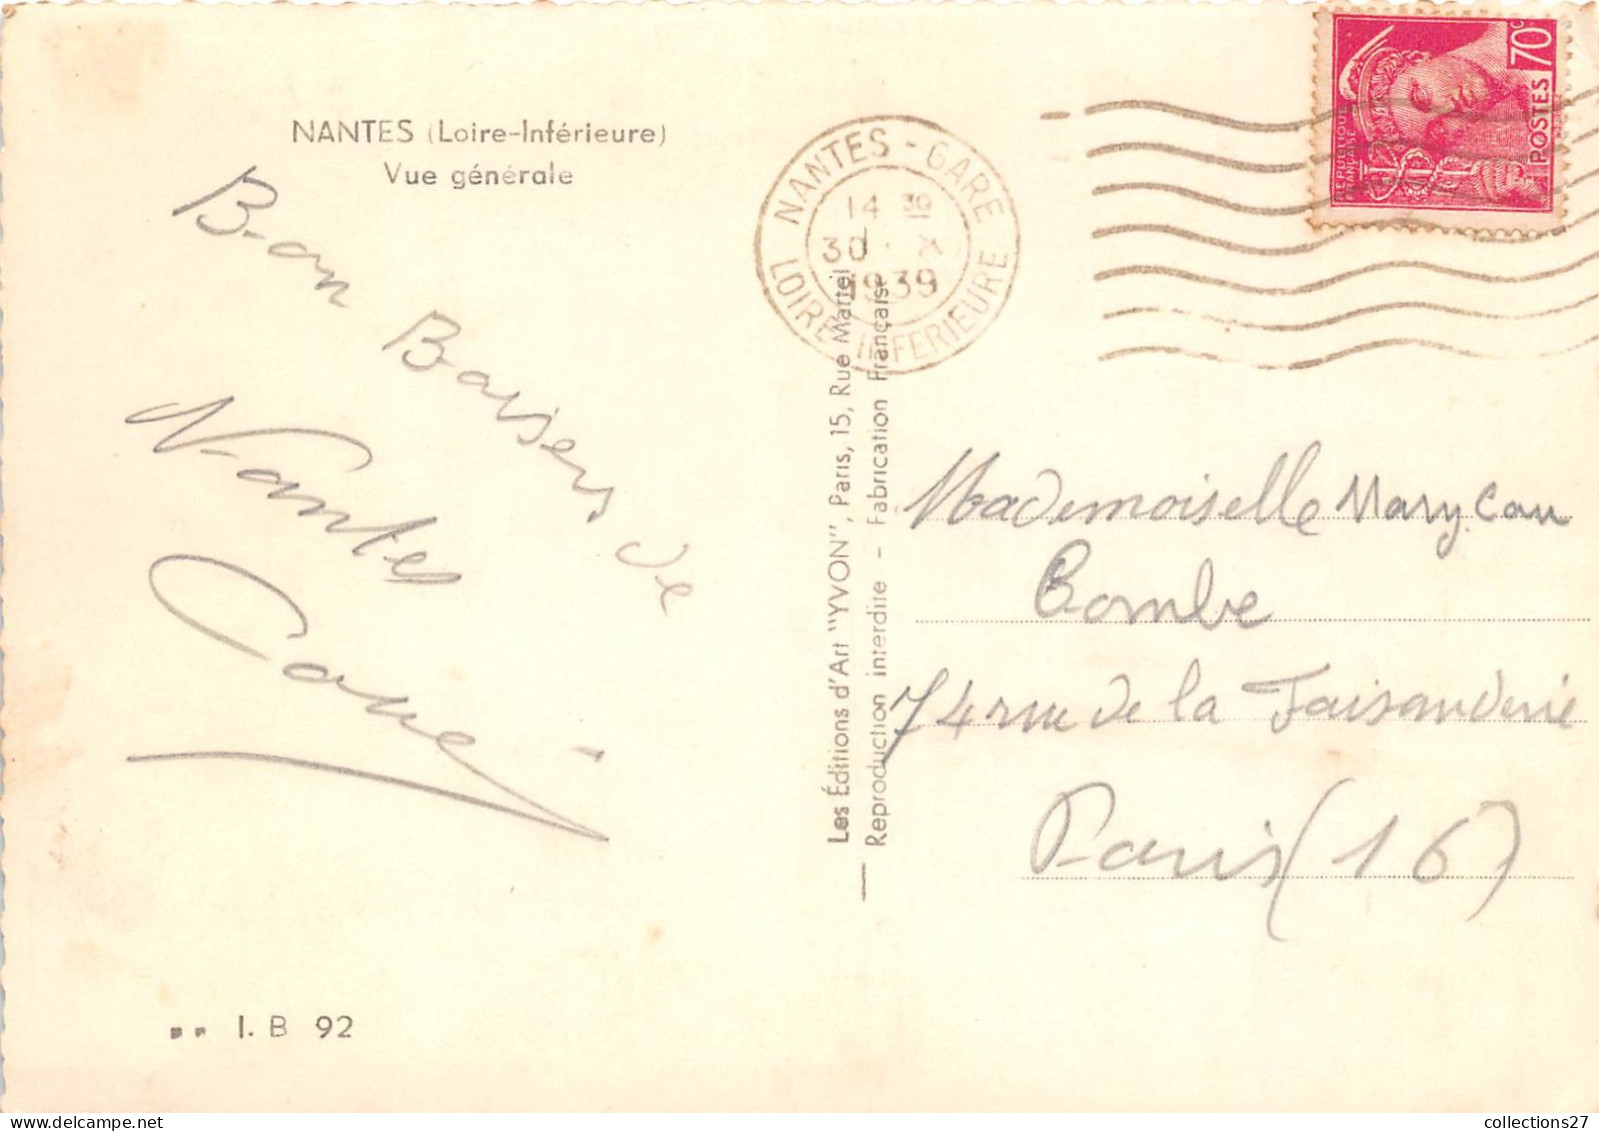 NANTES (Loire-Inférieure)
Vue générale
Bon Baisers de
Nantes
I. B 92
Les Éditions d'Art "YVON", Paris, 15, Rue Martel
Reproduction interdite - Fabrication Française
NANTES - GARE
14 30
30
1939
LOIRE INFERIEURE
70c
POSTES
REPUBLIQUE
FRANÇAISE
Mademoiselle Mary
Combe
74 rue de la Faisanderie
Paris (16)
collections27